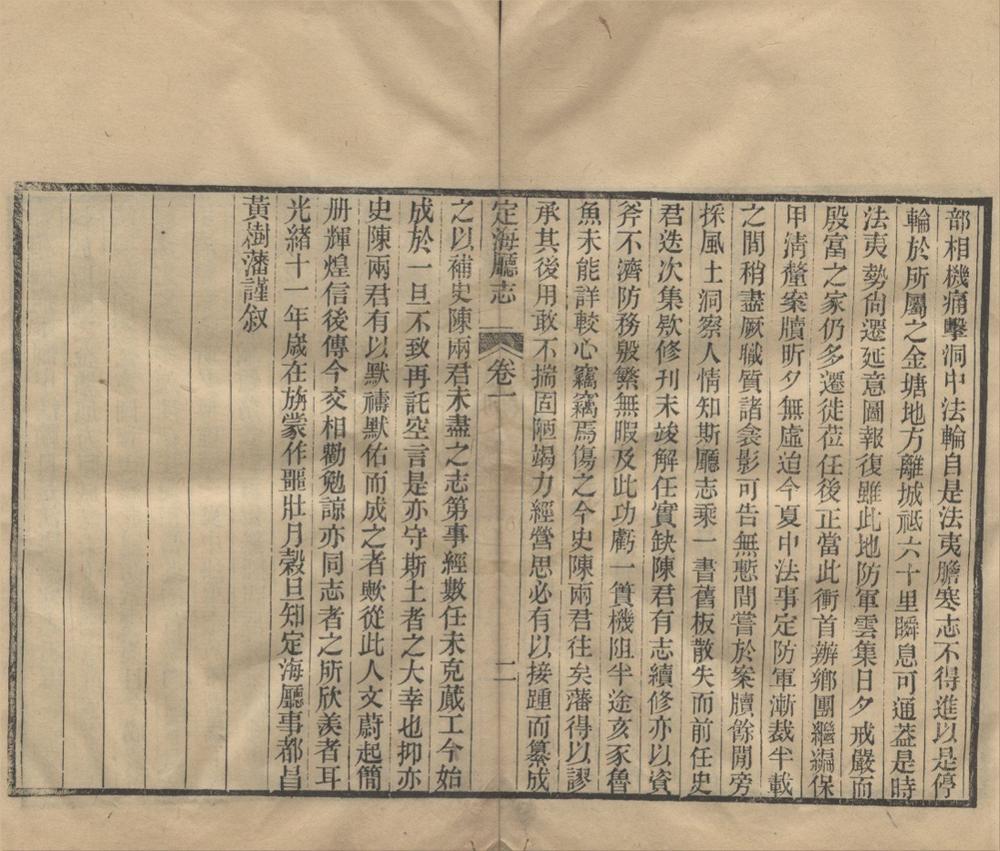 部相機痛擊洞中法輪自是法夷膽寒志不得進以是停
輪於所屬之金塘地方離城祗六十里瞬息可通蓋是時
法夷勢尙遷延意圖報復雖此地防軍雲集日夕戒嚴而
殷富之家仍多遷徙莅任後正當此衝首辦鄉團繼編保
甲淸釐案牘昕夕無虛迨今夏中法事定防軍漸裁半載
之間稍盡厥職質諸衾影可告無慙間嘗於案牘餘閒旁
採風土洞察人情知斯廳志乘一書舊板散失而前任史
君迭次集欵修刊未竣解任實缺陳君有志續修亦以資
斧不濟防務殷繁無暇及此功虧一簣機阻半途亥豕魯
魚未能詳較心竊竊焉傷之今史陳兩君往矣藩得以謬
承其後用敢不揣固陋竭力經營思必有以接踵而纂成
定海廳志 卷一 二
之以補史陳兩君未盡之志第事經數任未克蕆工今始
成於一旦不致再託空言是亦守斯土者之大幸也抑亦
史陳兩君有以默禱默佑而成之者歟從此人文蔚起簡
册輝煌信後傳今交相勸勉諒亦同志者之所欣羨者耳
光緖十一年歲在旃蒙作噩壯月穀旦知定海廳事都昌
黃樹藩謹叙